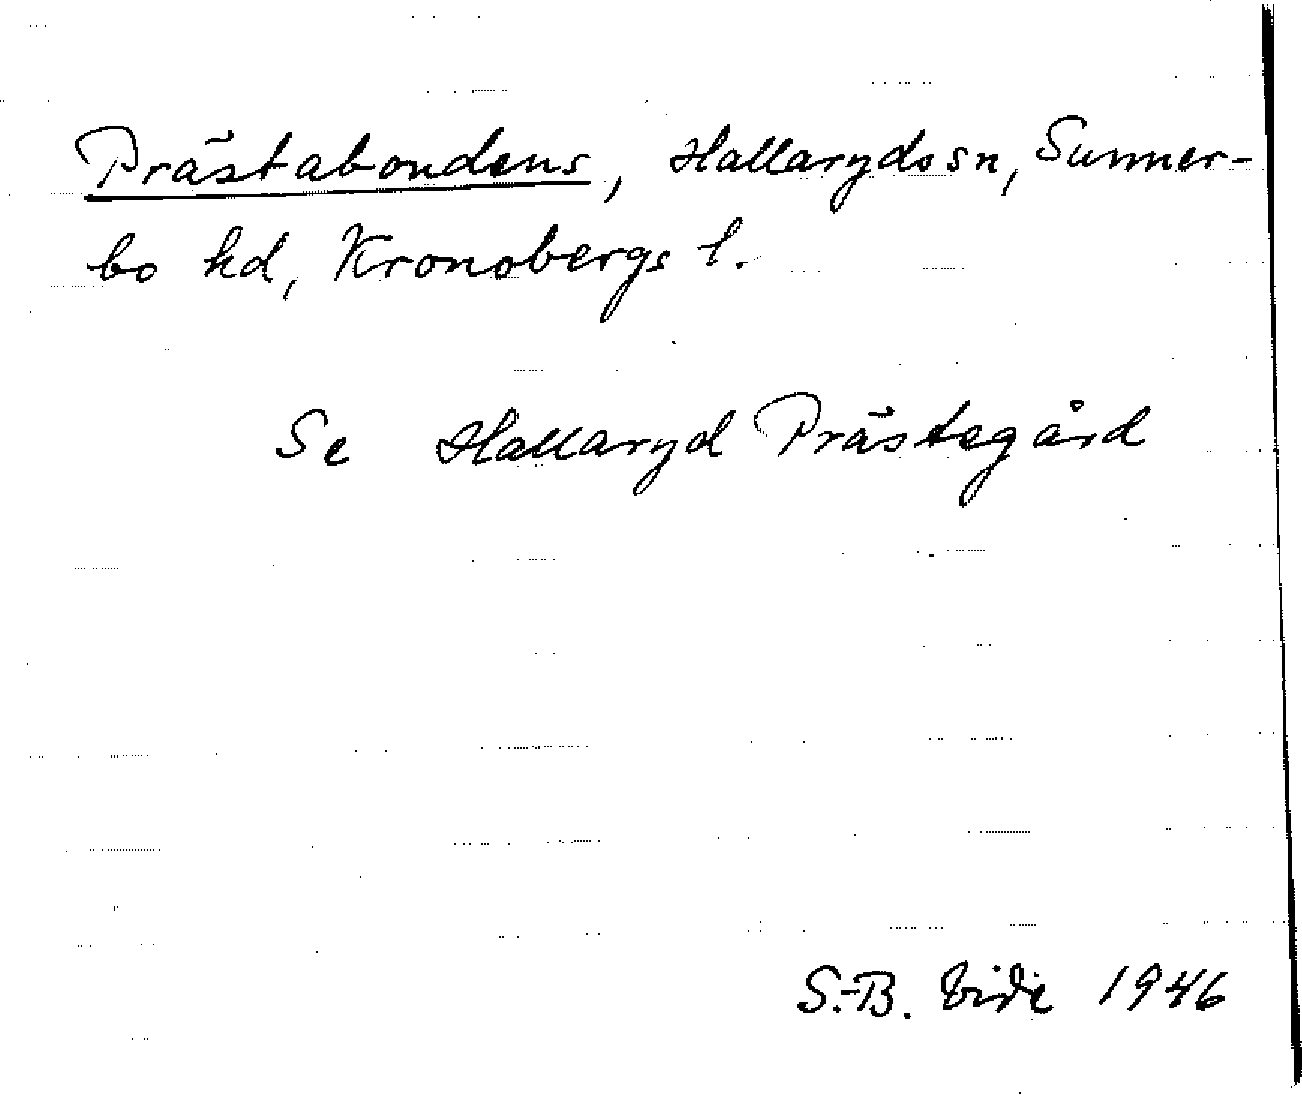 Prästabondens, Hallaryds sn, Sunner-
bo hd, Kronobergs l.
Se Hallaryd Prästegård
S.-B. Vide 1946